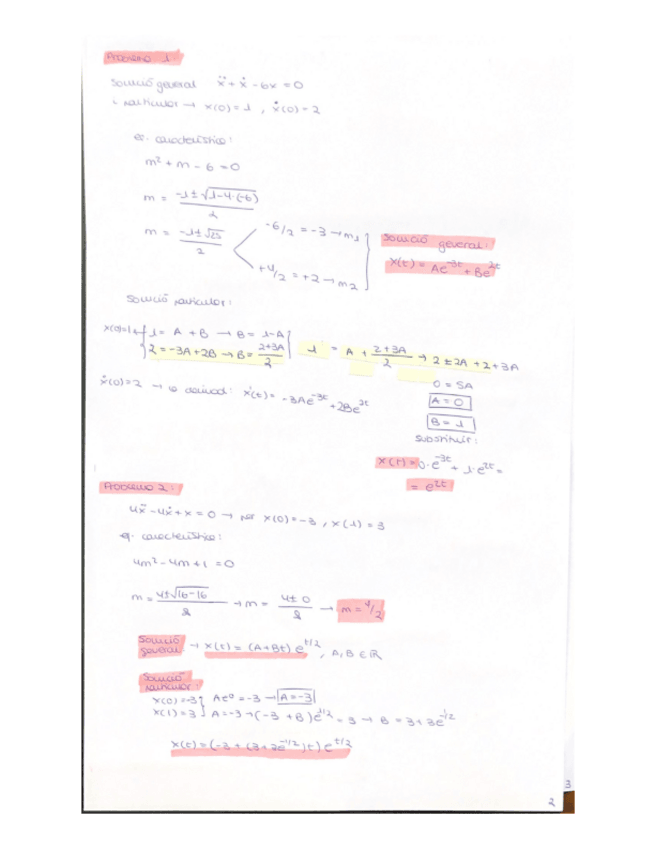 Problema 1:
Solució general ẍ + ẋ - 6x = 0
particular → x(0) = 1, ẋ(0) = 2
eq. característica:
m² + m - 6 = 0
m = (-1 ± √(1-4·(-6)))/2
m = (-1 ± √25)/2
-6/2 = -3 → m₁
+4/2 = +2 → m₂
Solució general:
x(t) = Ae^{-3t} + Be^{2t}
Solució particular:
x(0)=1 → 1 = A + B → B = 1-A
2 = -3A+2B → B = (2+3A)/2
1 = A + (2+3A)/2 → 2 = 2A + 2 + 3A
ẋ(0)=2 → derivad: ẋ(t) = -3Ae^{-3t} + 2Be^{2t}
0 = 5A
A = 0
B = 1
Substituir:
x(t) = 0·e^{-3t} + 1·e^{2t} =
= e^{2t}
Problema 2:
4ẍ - 4ẋ + x = 0 → per x(0) = -3, x(1) = 3
eq. característica:
4m² - 4m + 1 = 0
m = (4±√(16-16))/8 → m = (4±0)/8 → m = 1/2
Solució general → x(t) = (A+Bt) e^{t/2}, A, B ∈ ℝ
Solució particular:
x(0) = -3 Ae⁰ = -3 → A = -3
x(1) = 3 A = -3 → (-3 + B)e^{1/2} = 3 → B = 3+3e^{-1/2}
x(t) = (-3 + (3+3e^{-1/2})t) e^{t/2}
3
2